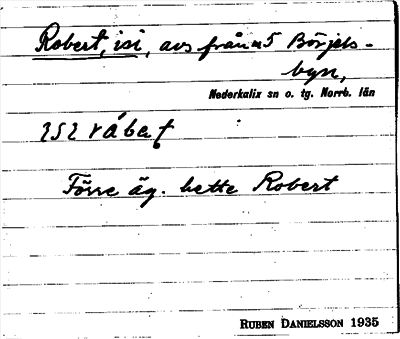 Robert, isi, avs från n5 Börjels-
byn,
Nederkalix sn o. tg. Norrb. län
252 råbeṭ
Förre äg. hette Robert
RUBEN DANIELSSON 1935